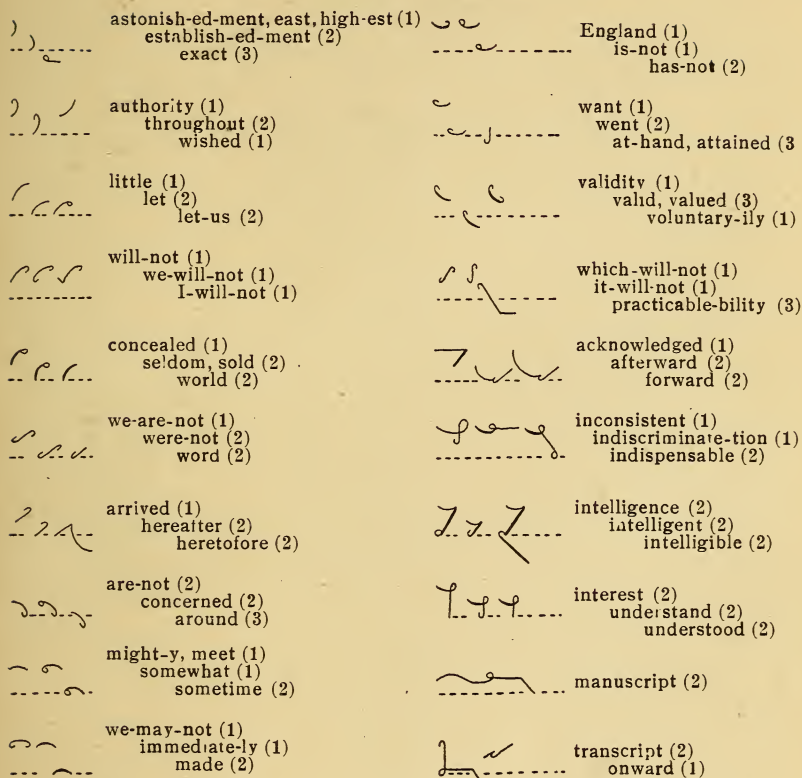 astonish-ed-ment, east, high-est (1)
establish-ed-ment (2)
exact (3)
authority (1)
throughout (2)
wished (1)
little (1)
let (2)
let-us (2)
will-not (1)
we-will-not (1)
I-will-not (1)
concealed (1)
seldom, sold (2)
world (2)
we-are-not (1)
were-not (2)
word (2)
arrived (1)
hereafter (2)
heretofore (2)
are-not (2)
concerned (2)
around (3)
might-y, meet (1)
somewhat (1)
sometime (2)
we-may-not (1)
immediate-ly (1)
made (2)
England (1)
is-not (1)
has-not (2)
want (1)
went (2)
at-hand, attained (3
validity (1)
valid, valued (3)
voluntary-ily (1)
which-will-not (1)
it-will-not (1)
practicable-bility (3)
acknowledged (1)
afterward (2)
forward (2)
inconsistent (1)
indiscriminate-tion (1)
indispensable (2)
intelligence (2)
intelligent (2)
intelligible (2)
interest (2)
understand (2)
understood (2)
manuscript (2)
transcript (2)
onward (1)